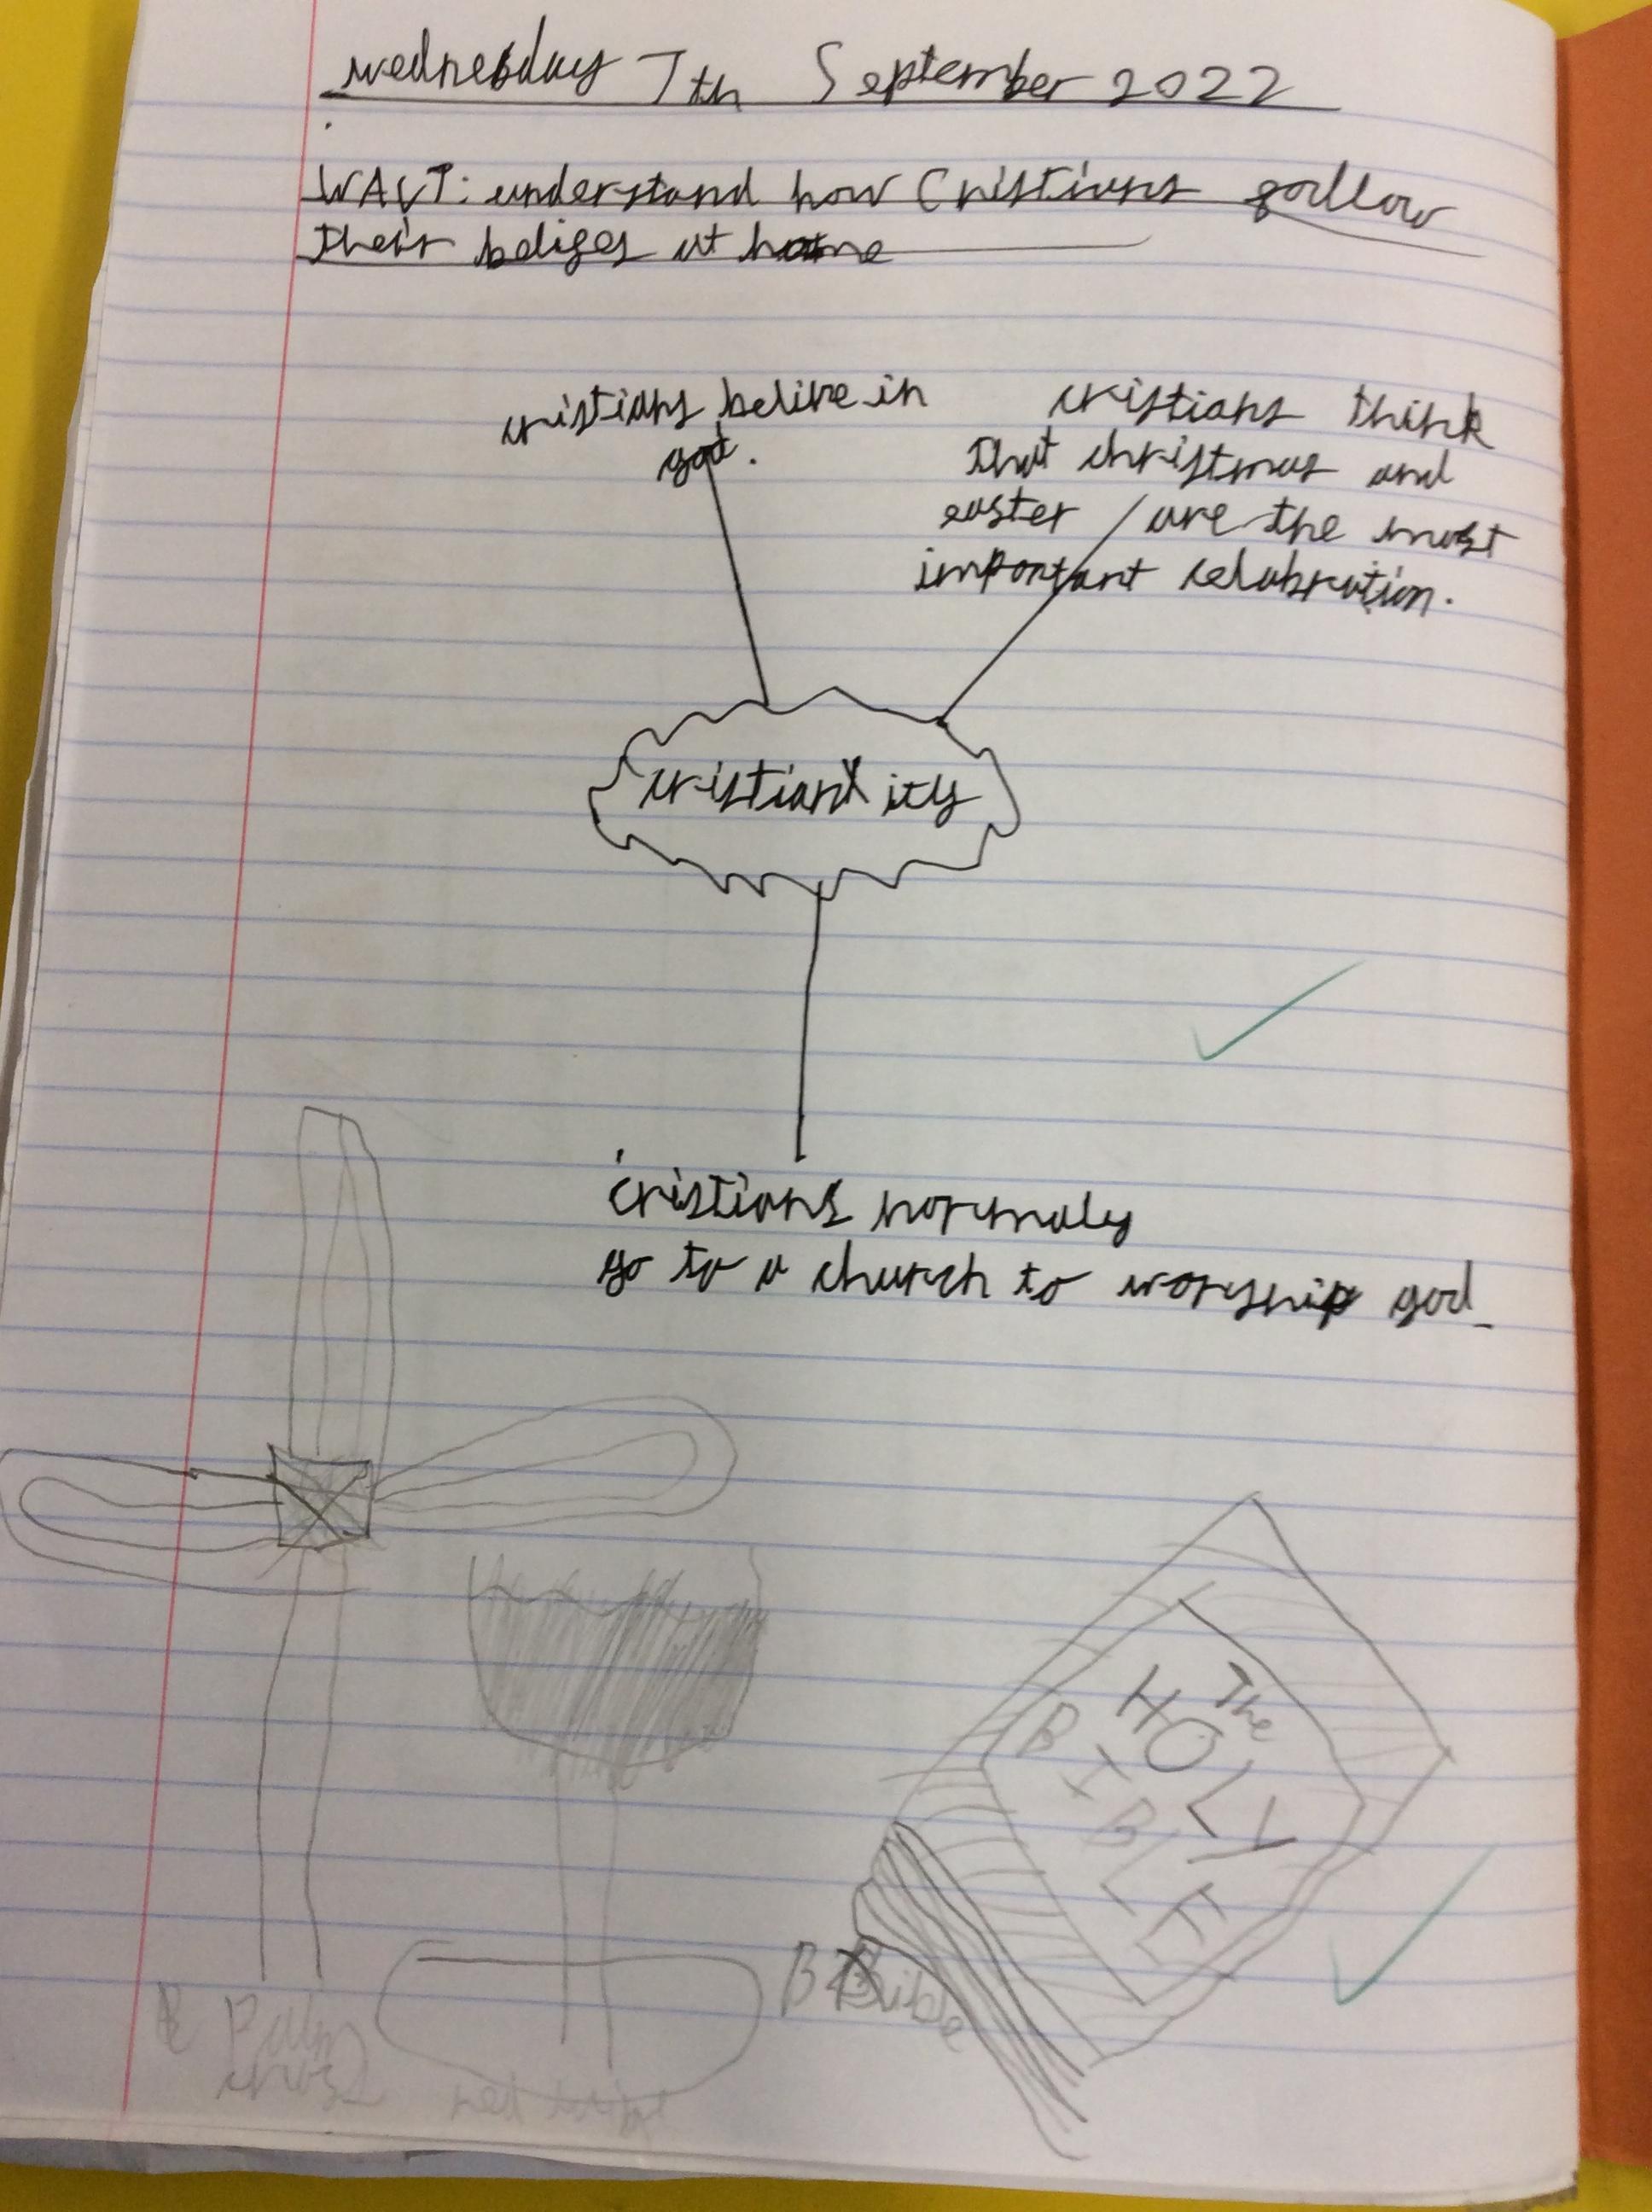 Wednesday 7th September 2022
WALT: understand how Cristians follow
their belifes at home
cristians belive in
god.
cristians think
that christmas and
easter are the most
important celabration.
cristianity
cristians normaly
go to a church to worship god
The
HOLY
BIBLE
Bible
Palm
Cross
red wine